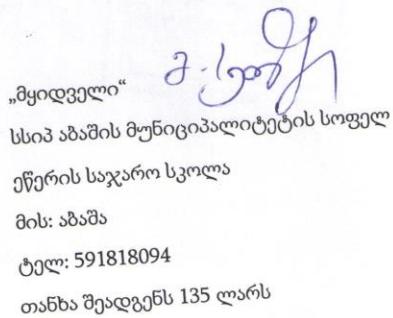 „მყიდველი“
სსიპ აბაშის მუნიციპალიტეტის სოფელ
ეწერის საჯარო სკოლა
მის: აბაშა
ტელ: 591818094
თანხა შეადგენს 135 ლარს